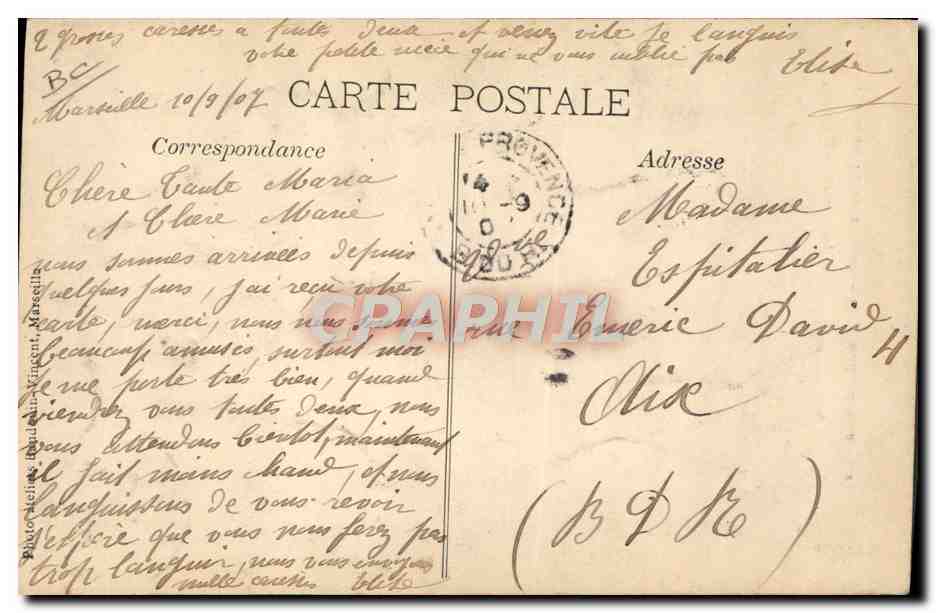 2 grosses caresses a toutes deux et venez vite je languis
votre petite niece qui ne vous oublie pas Elise
BC
Marseille 10/9/07
CARTE POSTALE
Correspondance
Chère Tante Maria
et Chère Marie
nous sommes arrivées depuis
quelques jours, j'ai reçu votre
carte, merci, nous nous sommes
beaucoup amusés, surtout moi
Je me porte très bien, quand
viendrez vous toutes deux, nous
vous attendons bientot, maintenant
il fait moins chaud, et nous
languissons de vous revoir
J'espère que vous nous ferez pas
trop languir, nous vous envoyons
mille caresses Elise
Adresse
Madame
Espitalier
rue Emeric David
4
Aix
(B D R)
PROVENCE
9
DU R
CPAPHIL
Photo Ateliers Baudouin-Vincent, Marseille